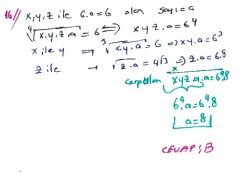 16// x,y,z ile G.O=6 olan sayı=a
⁴√x.y.z.a = 6 ⇒ xyz.a=6⁴
x ile y → ³√x.y.a = 6 ⇒ x.y.a=6³
z ile → √z.a = 4√3 ⇒ z.a=6.8
çarpalım xyz.a.a=6⁴.8
6⁴.a=6⁴.8
a=8
CEVAP:B